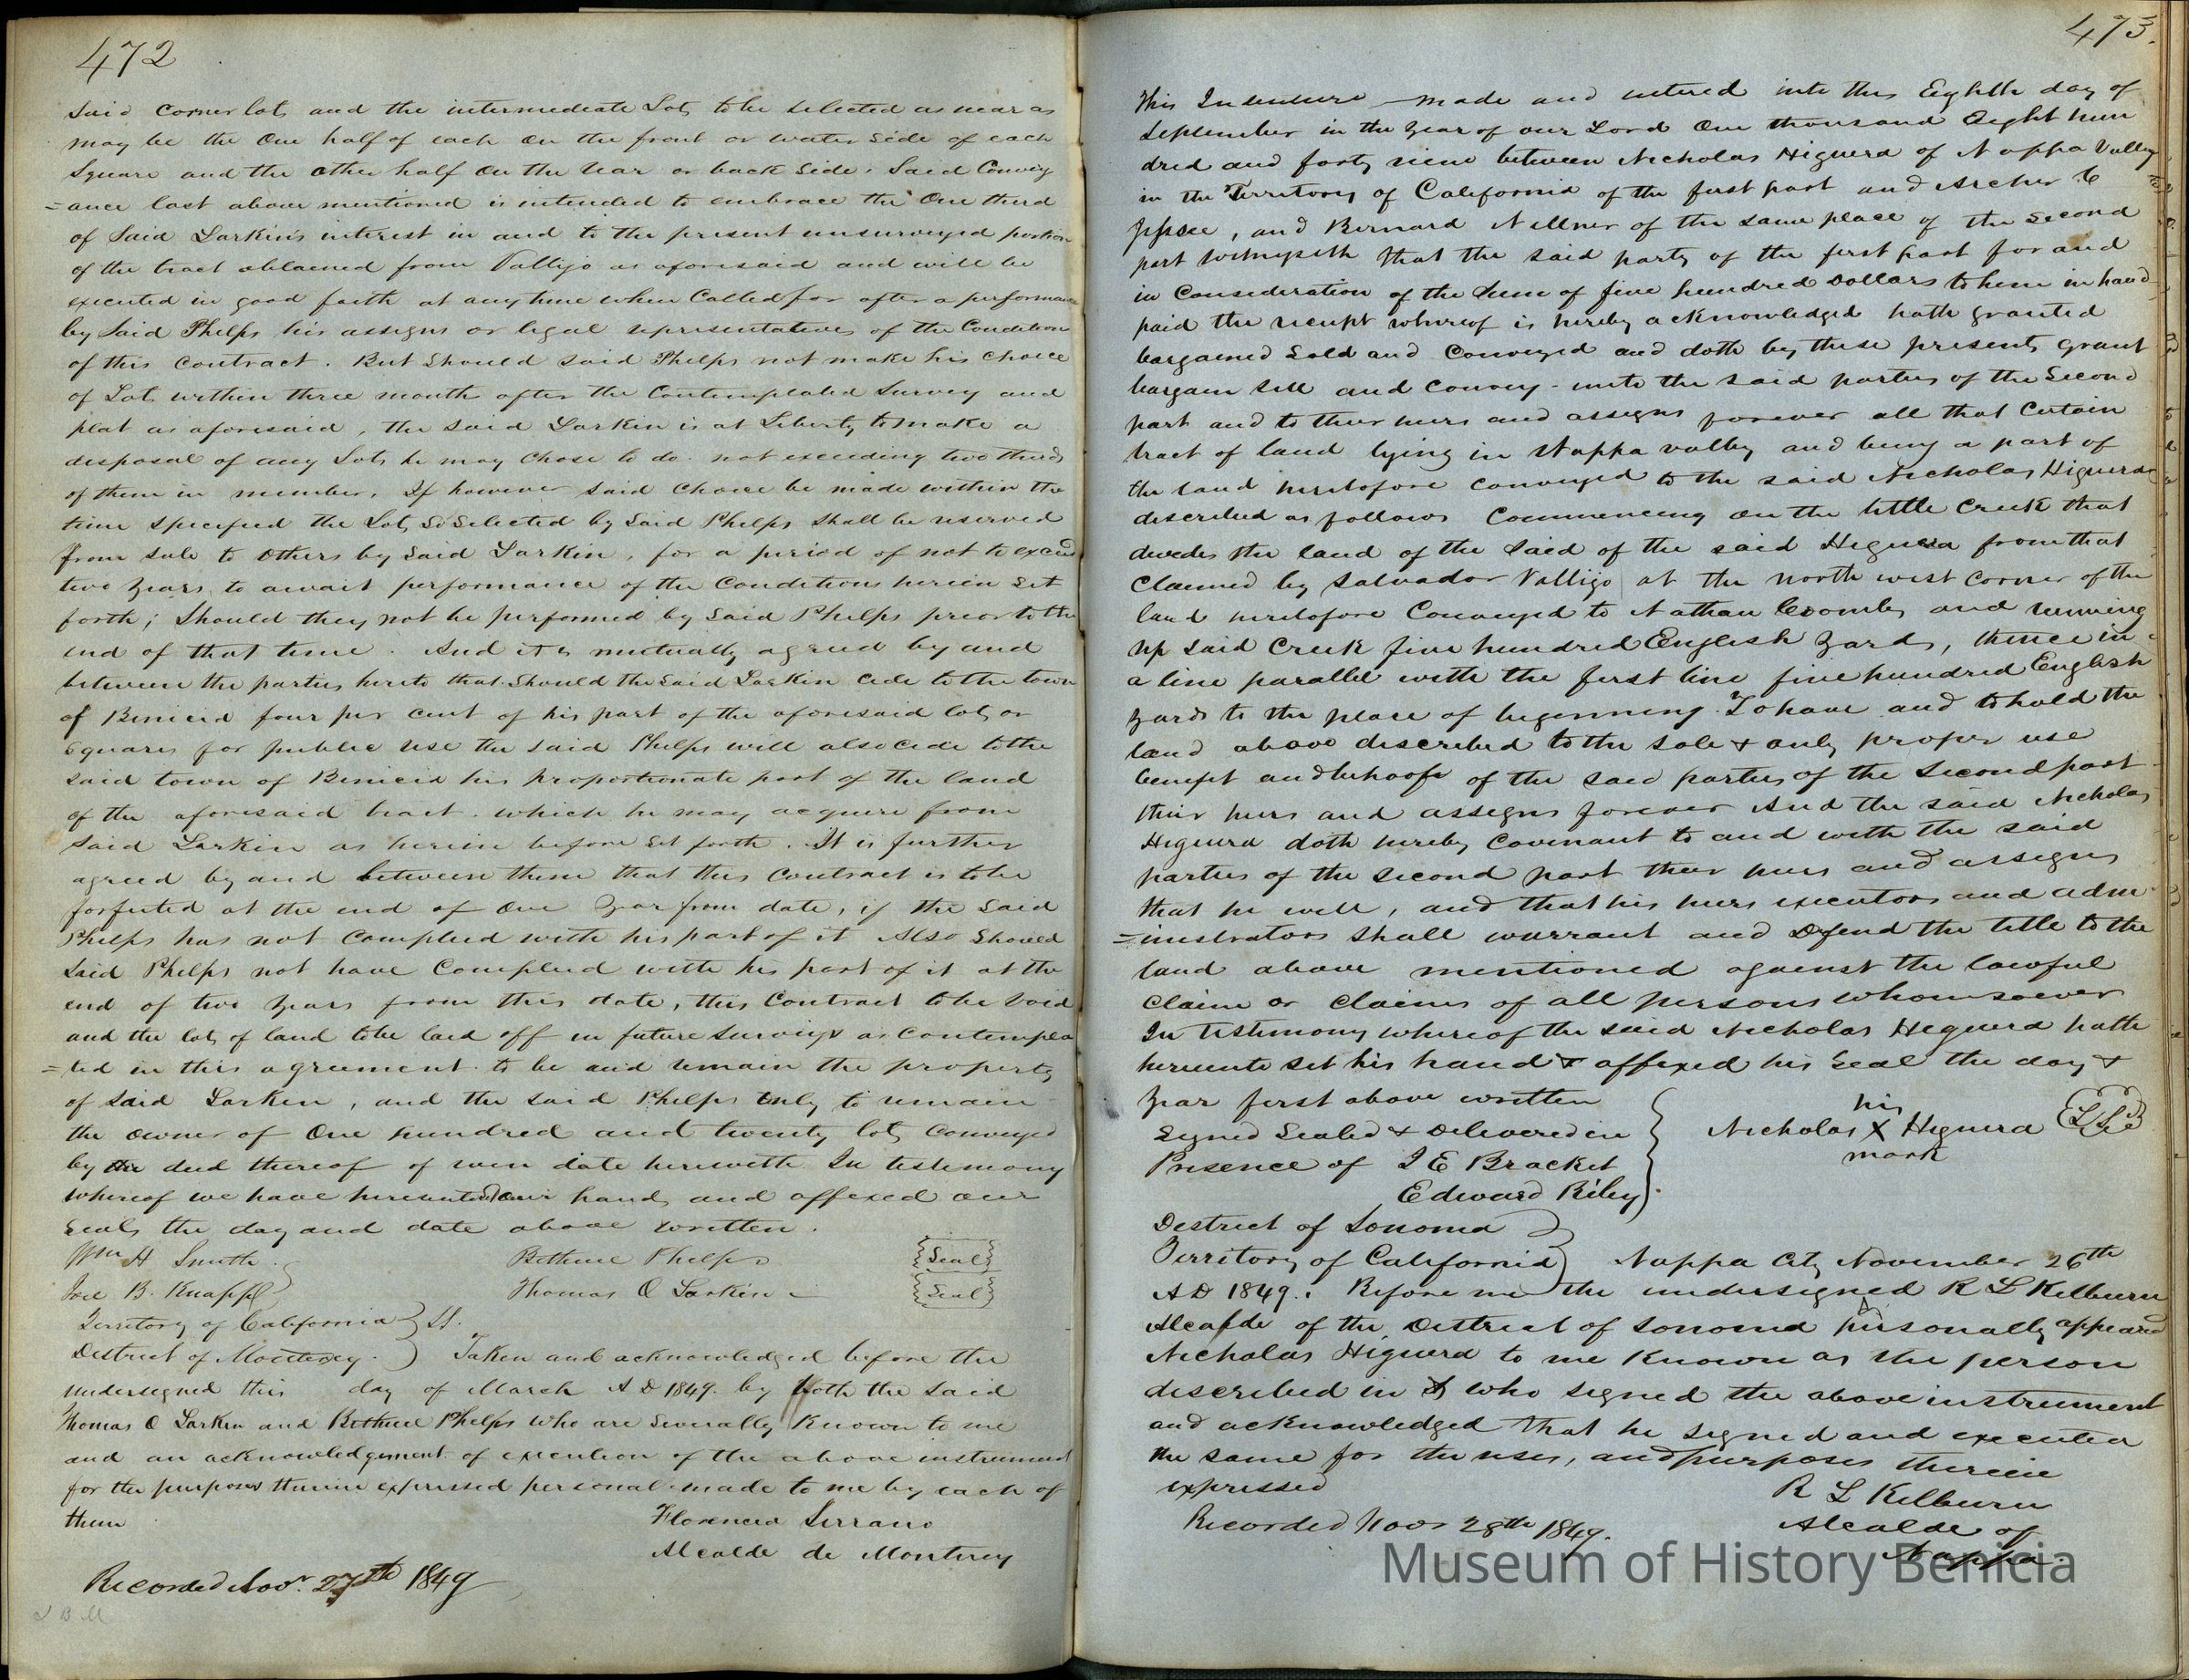 472
Said Corner lots and the intermediate Lots to be selected as near as
may be the One half of each on the front or water side of each
Square and the other half on the rear or back side. Said Convey
=ance last above mentioned is intended to embrace the One third
of Said Larkin's interest in and to the present unsurveyed portion
of the tract obtained from Vallijo as aforesaid and will be
executed in good faith at any time when Called for after a performance
by Said Phelps his assigns or legal representatives of the Condition
of this Contract. But Should Said Phelps not make his choice
of Lots within three month after the Contemplated Survey and
plat as aforesaid, the Said Larkin is at Liberty to make a
disposal of any Lots he may Chose to do. not exceeding two thirds
of them in number. If however Said Choice be made within the
time specified the Lots So Selected by Said Phelps Shall be reserved
from sale to others by Said Larkin, for a period of not to exceed
two years to await performance of the Conditions herein Set
forth; Should they not be performed by Said Phelps prior to the
end of that time. And it is mutually agreed by and
between the parties hereto that Should the Said Larkin cede to the town
of Benicia four per cent of his part of the aforesaid lots or
squares for public use the Said Phelps will also cede to the
said town of Benicia his proportionate part of the land
of the aforesaid tract. which he may acquire from
Said Larkin as herein before set forth. It is further
agreed by and between them that this Contract is to be
forfeited at the end of One Year from date, if the Said
Phelps has not Complied with his part of it Also Should
Said Phelps not have Complied with his part of it at the
end of two Years from this date, this Contract to be Void
and the lots of land to be laid off in future Surveys as Contempla
=ted in this agreement. to be and remain the property
of Said Larkin, and the Said Phelps only to remain
the owner of One hundred and twenty lots Conveyed
by deed thereof of even date herewith In testimony
whereof we have hereunto our hands and affixed our
seals the day and date above written.
Wm H Smith Bethuel Phelps {Seal}
Joel B. Knapp Thomas O Larkin {Seal}
Territory of California } SS.
District of Monterey. ) Taken and acknowledged before the
undersigned this day of March A D 1849. by both the Said
Thomas O Larkin and Bethuel Phelps who are Severally Known to me
and an acknowledgement of execution of the above instrument
for the purposes therein expressed personal made to me by each of
them
Florencio Serrano
Alcalde de Monterey
Recorded Nov. 27th 1849
473.
This Indenture made and entered into this Eighth day of
September in the Year of our Lord One thousand Eight hun
dred and forty nine between Nicholas Higuera of Nappa Valley
in the Territory of California of the first part and Archer C
Jessee, and Bernard Nellner of the same place of the Second
part Witnesseth that the said party of the first part for and
in Consideration of the Sum of five hundred Dollars to him in hand
paid the receipt whereof is hereby acknowledged hath granted
bargained Sold and Conveyed and doth by these presents grant
bargain sell and Convey unto the said parties of the Second
part and to their heirs and assigns forever all that Certain
tract of land lying in Nappa valley and being a part of
the land heretofore conveyed to the said Nicholas Higuera
described as follows Commencing on the little Creek that
devides the land of the Said of the said Higuera from that
Claimed by Salvador Valligo at the north west Corner of the
land heretofore Conveyed to Nathan Coombs and running
up Said Creek five hundred English Yards, thence in
a line parallel with the first line five hundred English
Yards to the place of beginning. To have and to hold the
land above described to the Sole & only proper use
benefit and behoofe of the said parties of the Second part
their heirs and assigns forever And the said Nicholas
Higuera doth hereby Covenant to and with the said
parties of the Second part their heirs and assigns
that he will, and that his heirs executors and adm
=inistrators shall warrant and Defend the title to the
land above mentioned against the lawful
Claim or Claims of all persons whomsoever
In testimony whereof the said Nicholas Higuera hath
hereunto Set his hand & affixed his Seal the day &
Year first above written
Signed Sealed & Delivered in } his
Presence of J E Bracket Nicholas X Higuera
Edward Riley mark
District of Sonoma )
Territory of California ) Nappa City November 26th
A D 1849. Before me the undersigned R L Kilburn
Alcalde of the District of Sonoma personally appeared
Nicholas Higuera to me Known as the person
described in & who signed the above instrument
and acknowledged that he signed and executed
the same for the uses, and purposes therein
expressed
R L Kilburn
Alcalde of
Nappa
Recorded Nov 28th 1849.
Museum of History Benicia